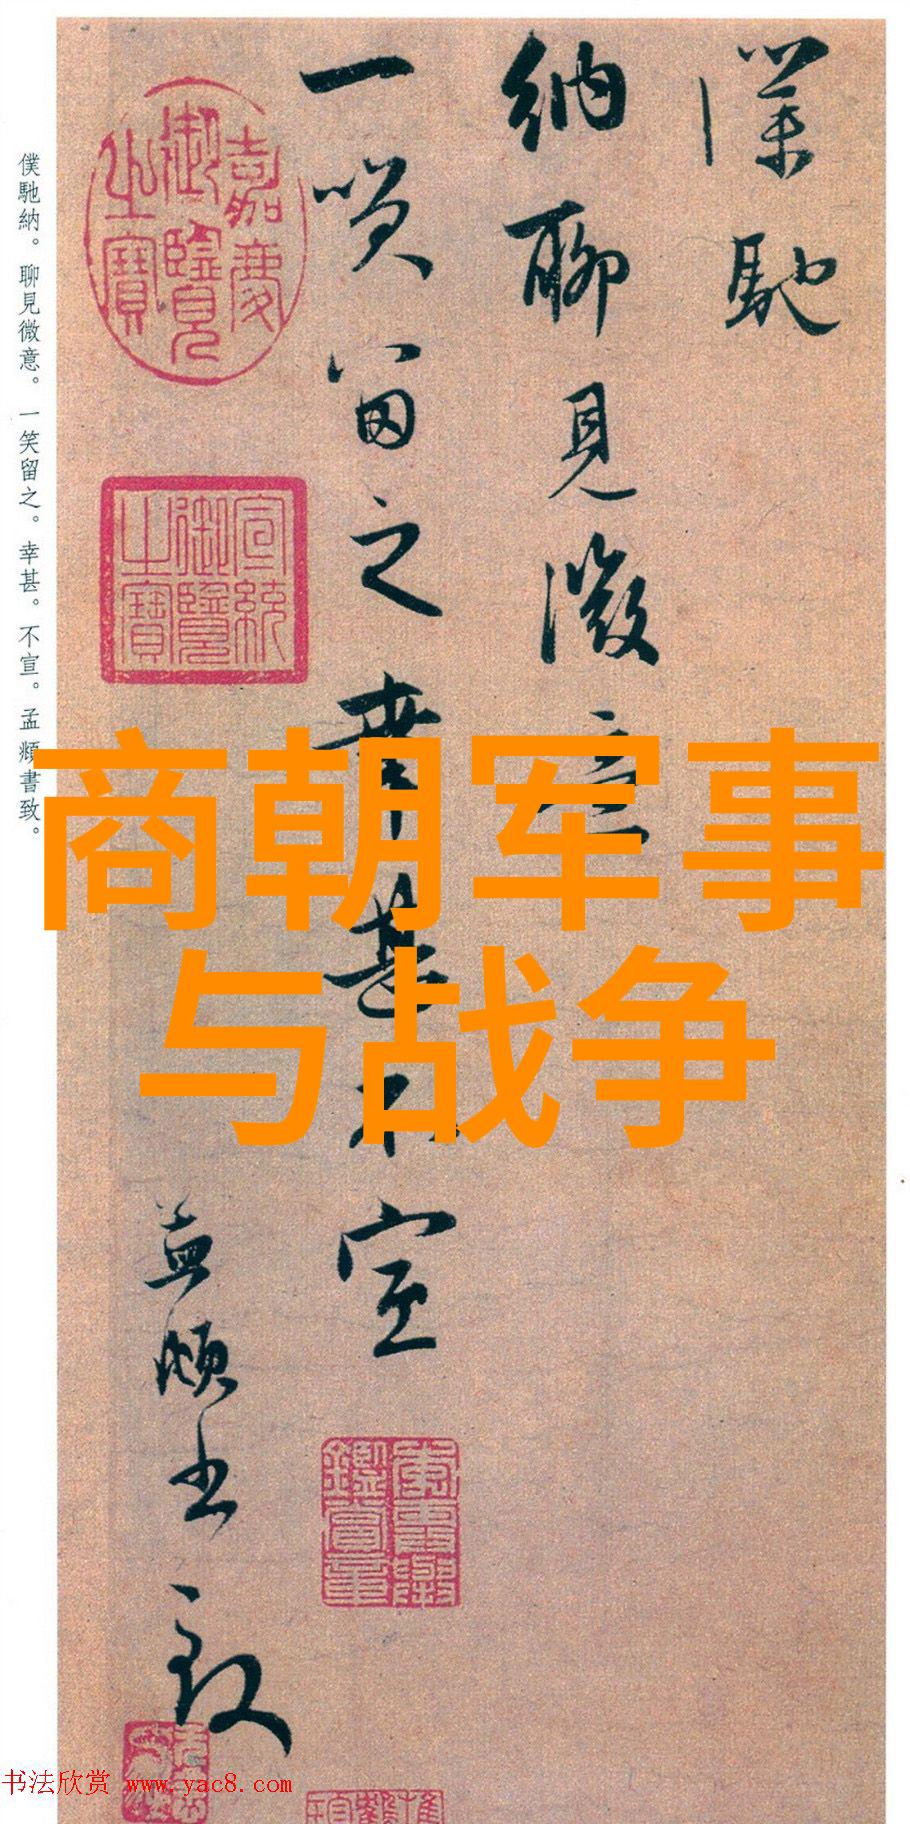 僕馳
納聊見微意
一笑留之幸甚不宣
孟頫書致
嘉慶
御覽
之寶
宣統
御覽
之寶
僕馳納。聊見微意。一笑留之。幸甚。不宣。孟頫書致。
商朝军事
与战争
书法欣赏 www.yac8.com